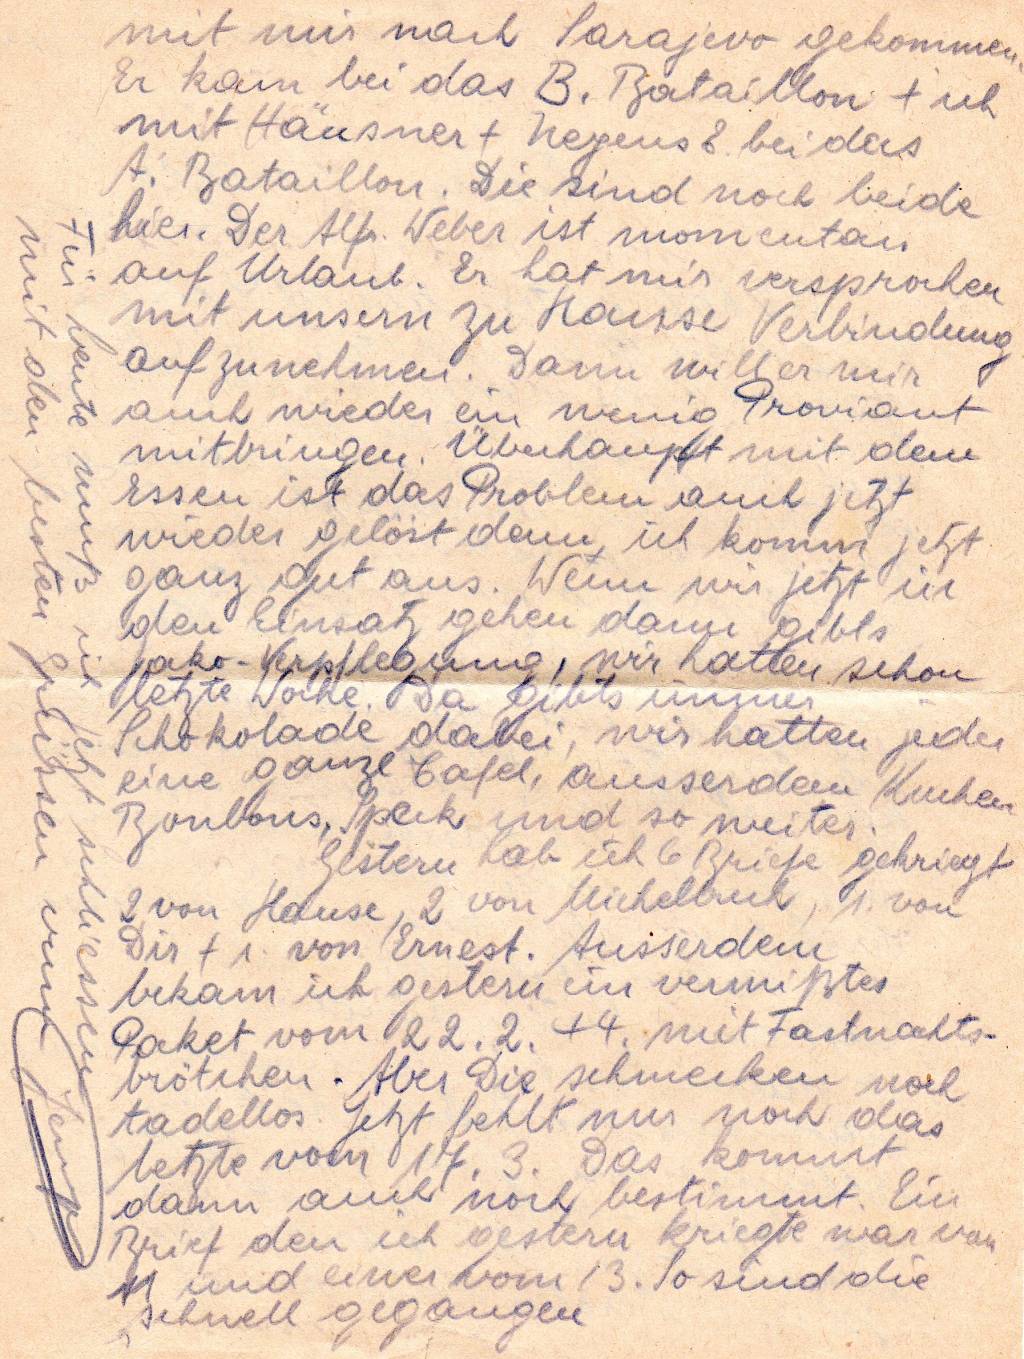 mit mir nach Sarajevo gekommen.
Er kam bei das B. Bataillon + ich
mit Häusner + Negens E. bei das
A. Bataillon. Die sind noch beide
hier. Der Alf. Weber ist momentan
auf Urlaub. Er hat mir versprochen
mit unsern zu Hausse Verbindung
aufzunehmen. Dann will er mir
auch wieder ein wenig Proviant
mitbringen. Überhaupt mit dem
Essen ist das Problem auch jetzt
wieder gelöst denn, ich komm jetzt
ganz gut aus. Wenn wir jetzt in
den Einsatz gehen dann gibts
jako-Verpflegung, wir hatten schon
letzte Woche. Da gibts immer
Schokolade dabei, wir hatten jeder
eine ganze Tafel, ausserdem Kuchen
Bonbons, Speck und so weiter.
Gestern hab ich 6 Briefe gekriegt
2 von Hause, 2 von Michelbuch, 1. von
Dir + 1. von Ernest. Ausserdem
bekam ich gestern ein vermißtes
Paket vom 22. 2. 44. mit Fastnachts-
brötchen. Aber Die schmecken noch
tadellos. Jetzt fehlt nur noch das
letzte vom 17. 3. Das kommt
dann auch noch bestimmt. Ein
Brief den ich gestern kriegte war von
11 und einer vom 13. So sind die
schnell gegangen
Für heute muß ich jetzt schliessen
mit den besten Grüssen vom Jemp